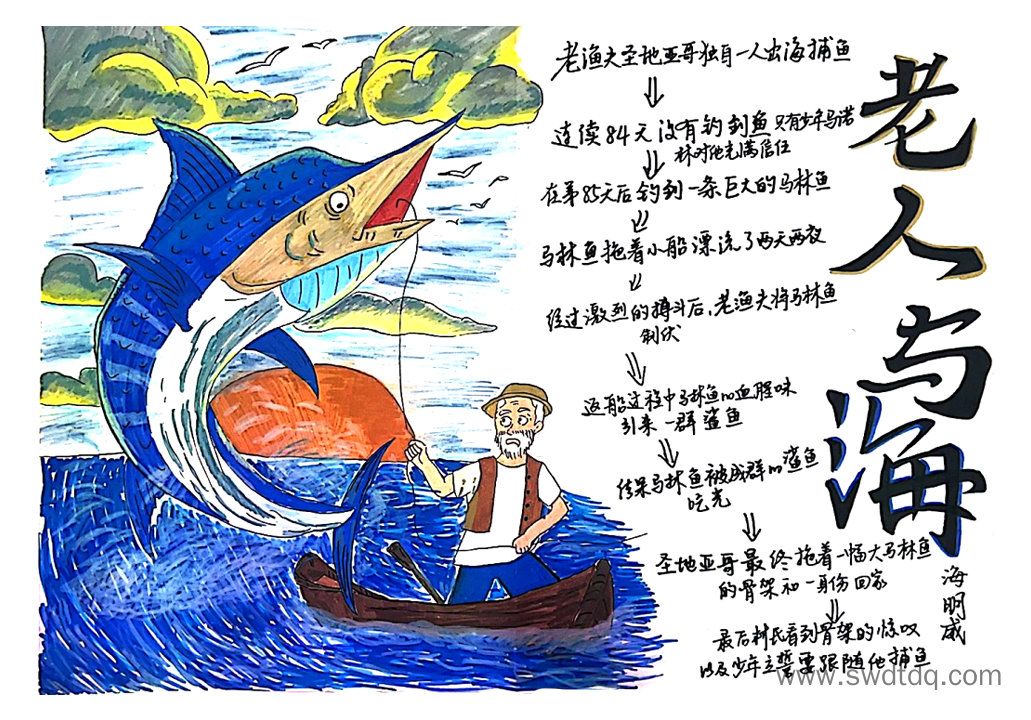 老人与海
海明威
老渔夫圣地亚哥独自一人出海捕鱼
连续84天没有钓到鱼只有少年马诺
林对他充满信任
在第85天后钓到一条巨大的马林鱼
马林鱼拖着小船漂流了两天两夜
经过激烈的搏斗后,老渔夫将马林鱼
制伏
返船过程中马林鱼的血腥味
引来一群鲨鱼
结果马林鱼被成群的鲨鱼
吃光
圣地亚哥最终拖着一幅大马林鱼
的骨架和一身伤回家
最后村民看到骨架的惊叹
以及少年立誓要跟随他捕鱼
www.swdtdq.com